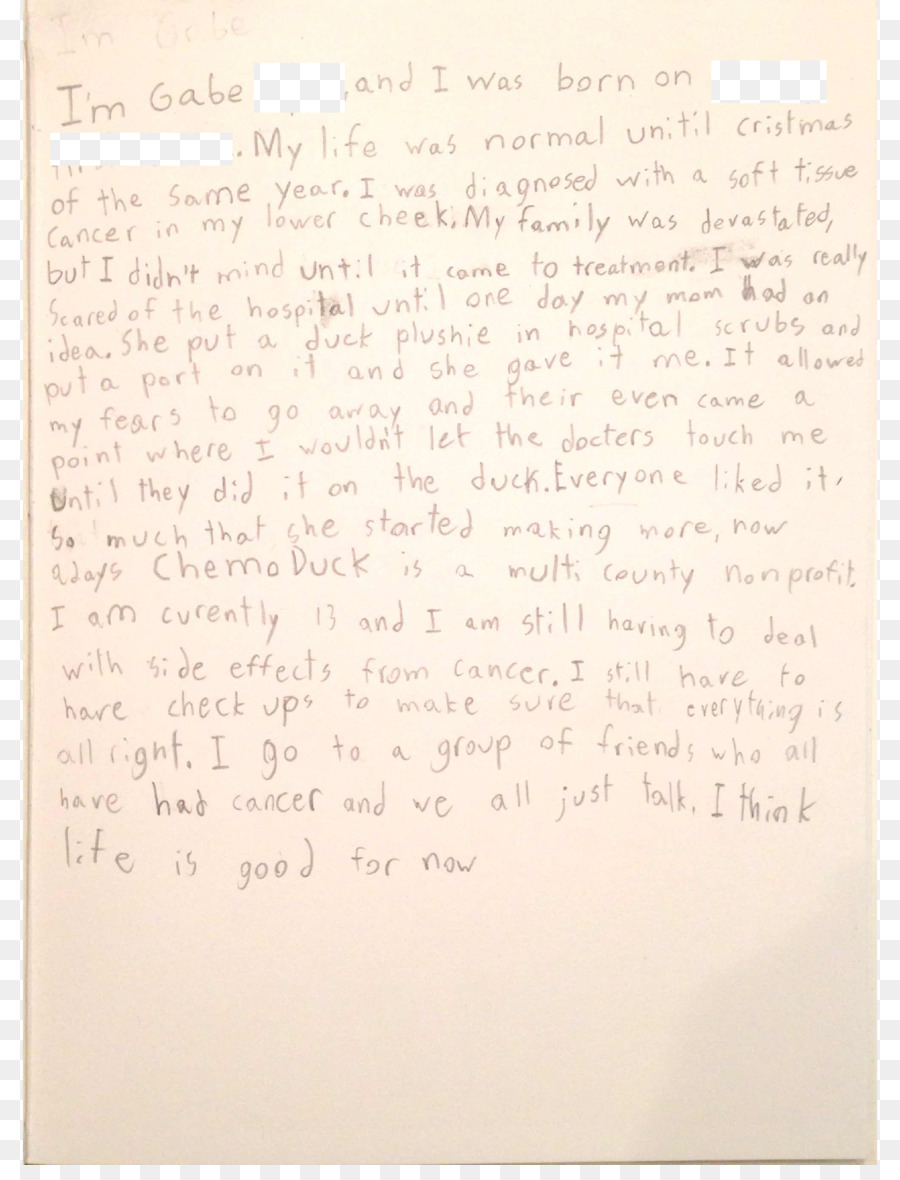 Im Grbe
I'm Gabe , and I was born on
. My life was normal unitil cristmas
of the same year. I was diagnosed with a soft tissue
cancer in my lower cheek. My family was devastated,
but I didn't mind until it came to treatment. I was really
scared of the hospital until one day my mom had an
idea. She put a duck plushie in hospital scrubs and
put a port on it and she gave it me. It allowed
my fears to go away and their even came a
point where I wouldn't let the docters touch me
until they did it on the duck. Everyone liked it,
so much that she started making more, now
adays Chemo Duck is a multi county nonprofit.
I am curently 13 and I am still having to deal
with side effects from cancer. I still have to
have check ups to make sure that everything is
all right. I go to a group of friends who all
have had cancer and we all just talk. I think
life is good for now